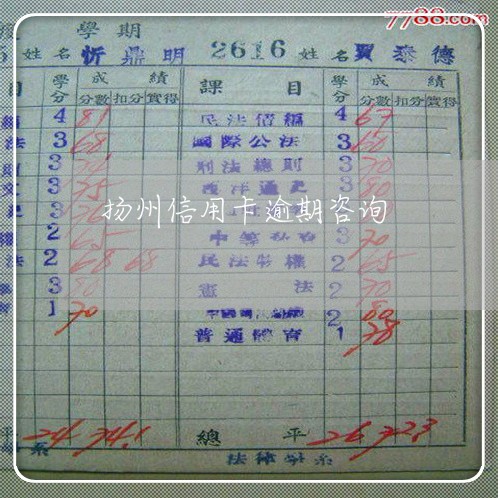 7788.com
學期
姓名 忻鼎明 2616 姓名 賈泰德
目 學分 成績 課目 學分 成績
分數 扣分 實得 分數 扣分 實得
4 81 民法債編 4 67
法 3 68 國際公法 3 60
3 刑法總則 3 70
3 75 西洋通史 3 80
扬州信用卡逾期咨询
2 65 3 70
法 2 68 68 民法物權 2 65
3 80 憲法 2 70
1 70 2 80
普通體育 1 78
平 24 74.1 總平 26 72.3
系 法律學系